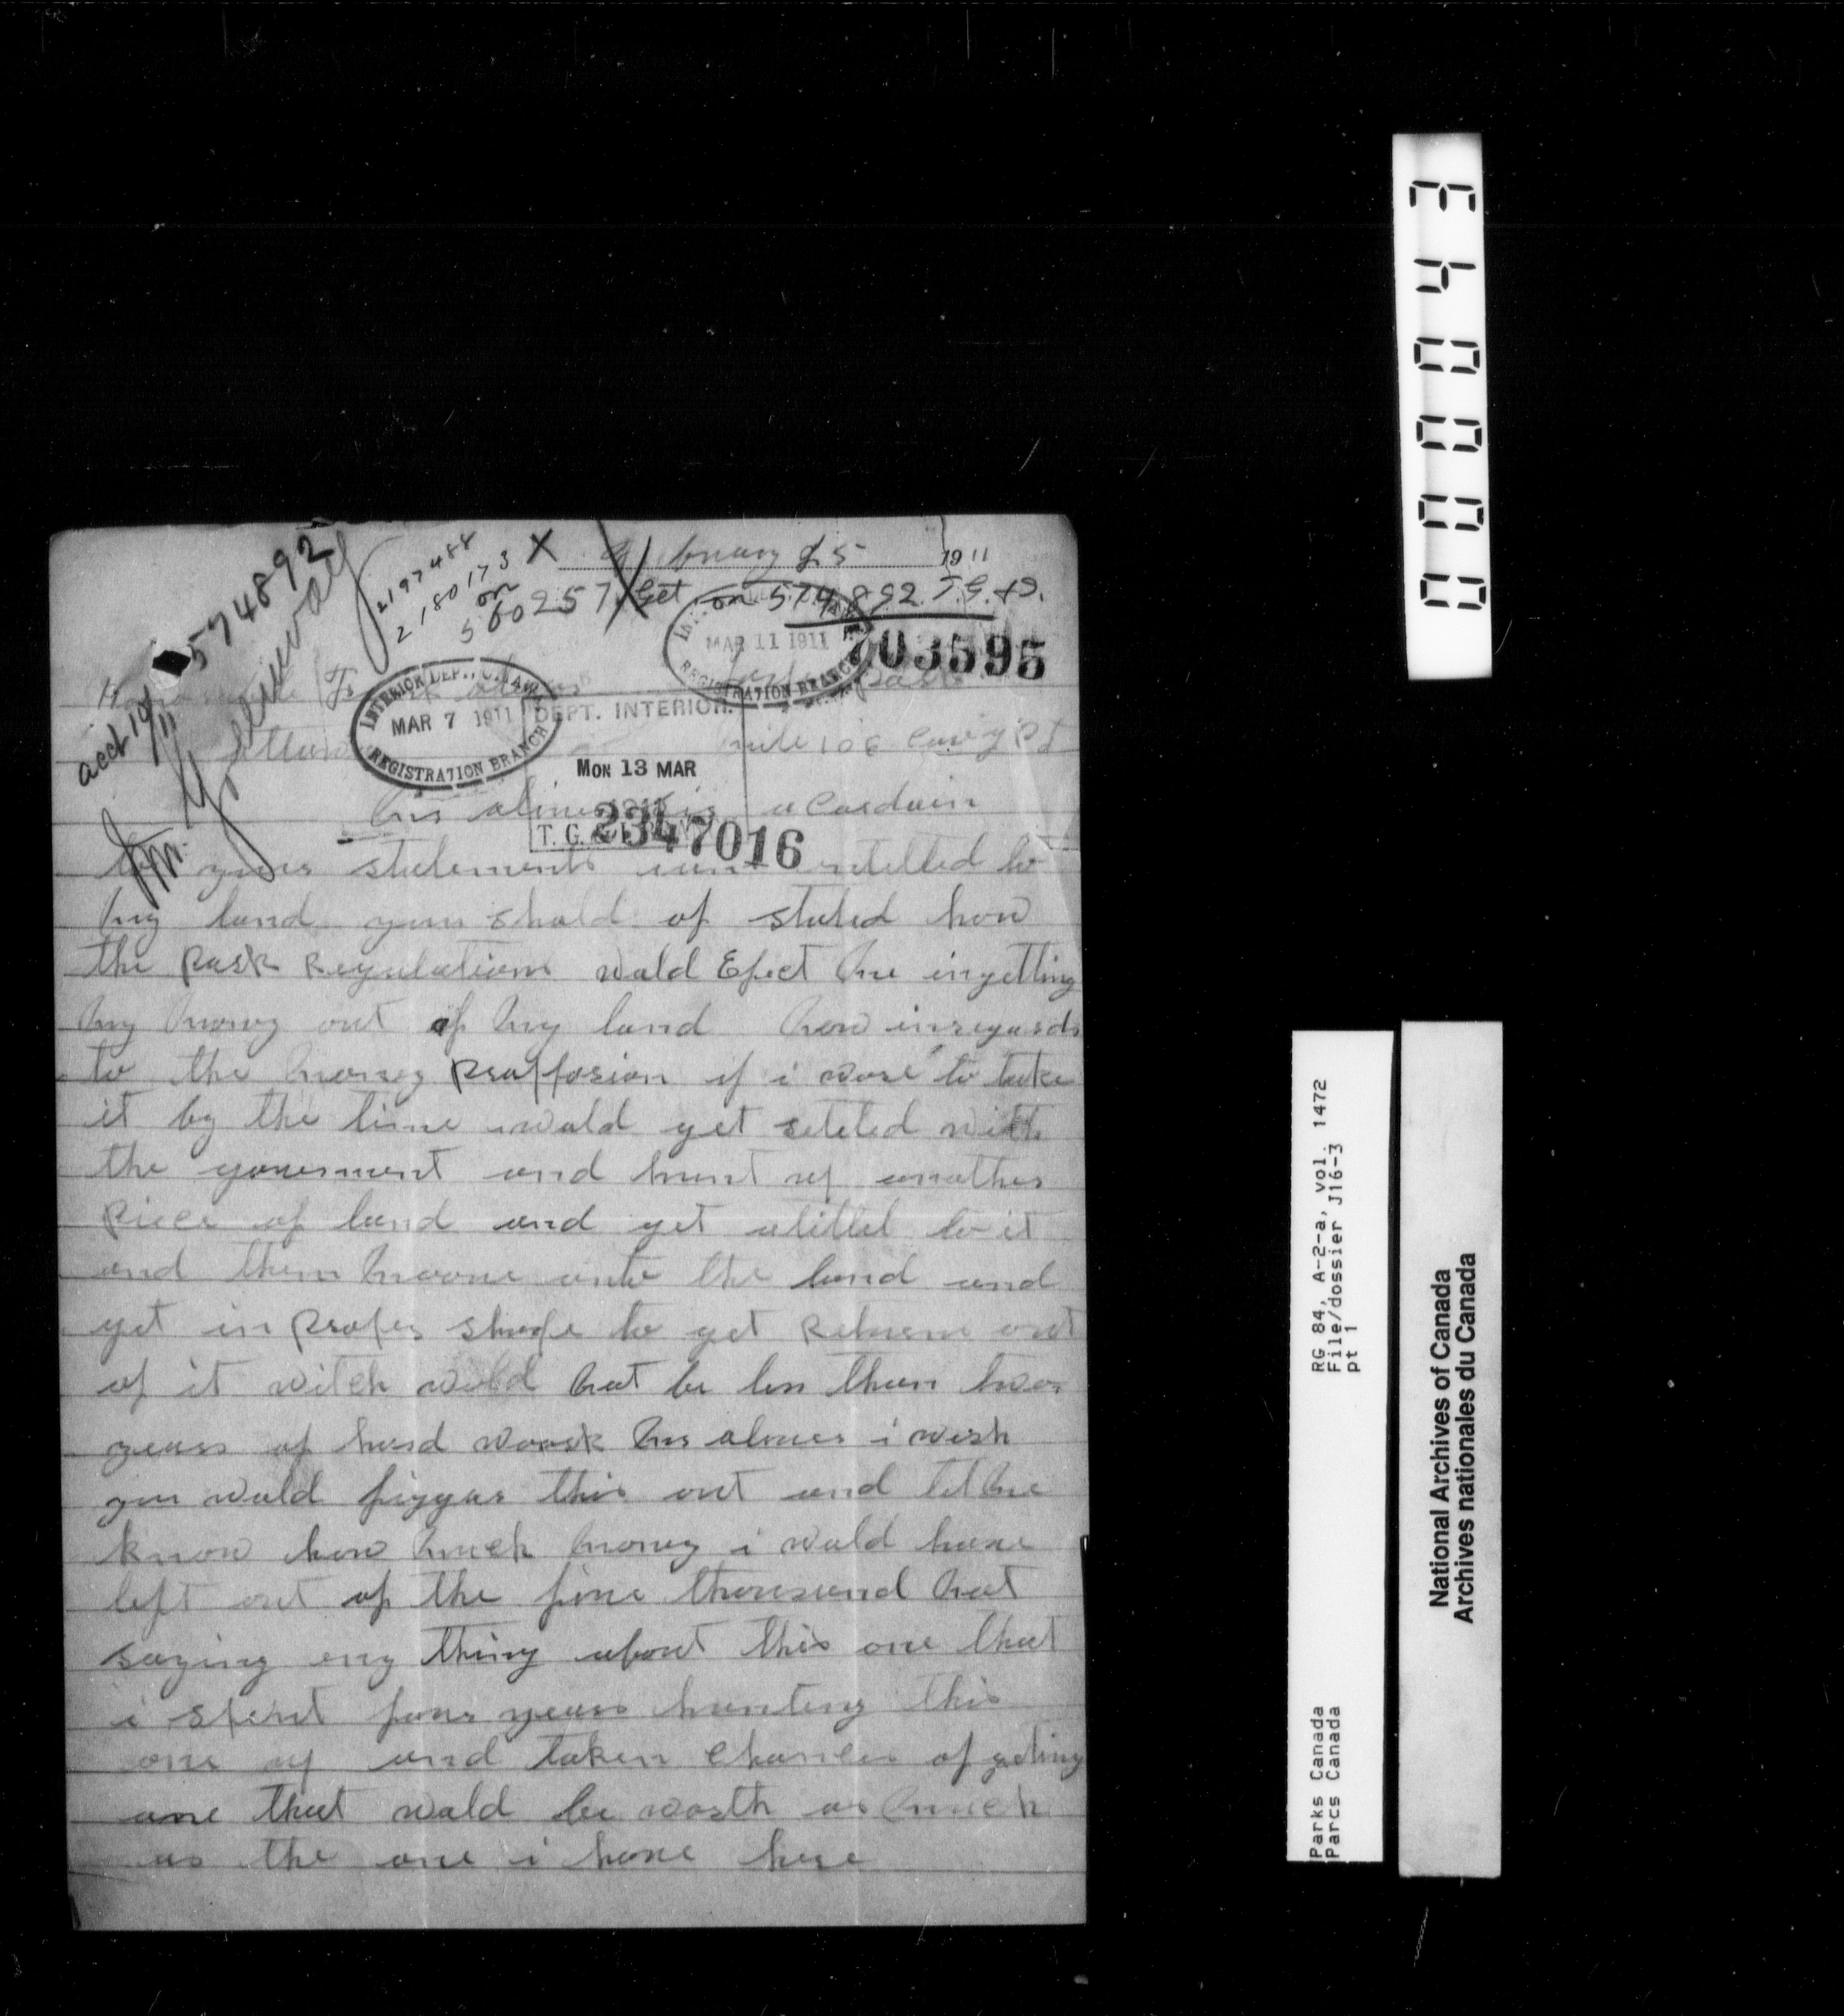 574892
2197488
2180173
on
560257
X
February 25 1911
Get on 574892. T.G. & D.
703595
MAR 11 1911
REGISTRATION BRANCH
INTERIOR DEP., OTTAWA
MAR 7 1911
REGISTRATION BRANCH
DEPT. INTERIOR.
MON 13 MAR
1911
T. G.
2347016
acct 19/11
Honourable Frank
pass
mile 108
oliver is acordain
to youres statements entelled to
my land you shold of stated how
the park Regulations wald Efect me ingetting
my money out of my land now inregards
to the money propposion if i ware to take
it by the time i wald get seteled with
the goverment and hunt up another
Piece of land and get atittel to it
and then moove onto the land and
get in proper shape to get Returns out
of it witch wold not be less than two
years of hard woork mr oliver i wish
you wald figgur this out and let me
know how much money i wald have
left out of the five thousand not
saying eny thing about this one that
i spent four years hunting this
one up and taken chances of geting
one that wald be worth as much
as the one i have here
00043
RG 84, A-2-a, vol. 1472
File/dossier J16-3
pt 1
Parks Canada
Parcs Canada
National Archives of Canada
Archives nationales du Canada